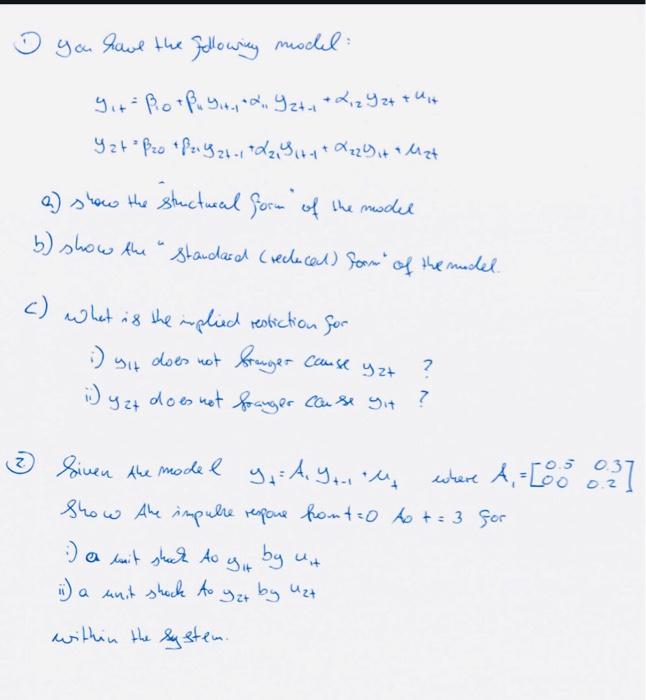 ① you have the following model:
y₁ₜ = β₁₀ + β₁₁ y₁ₜ₋₁ + α₁₁ y₂ₜ₋₁ + α₁₂ y₂ₜ + u₁ₜ
y₂ₜ = β₂₀ + β₂₁ y₂ₜ₋₁ + α₂₁ y₁ₜ₋₁ + α₂₂ y₁ₜ + u₂ₜ
a) show the "structural form" of the model
b) show the "standard (reduced) form" of the model.
c) what is the implied restriction for
i) y₁ₜ does not Granger cause y₂ₜ ?
ii) y₂ₜ does not Granger cause y₁ₜ ?
② Given the model yₜ = A₁ yₜ₋₁ + uₜ where A₁ = [0.5 0.3
0.0 0.2]
Show the impulse respone from t=0 to t=3 for
i) a unit shock to y₁ₜ by u₁ₜ
ii) a unit shock to y₂ₜ by u₂ₜ
within the system.